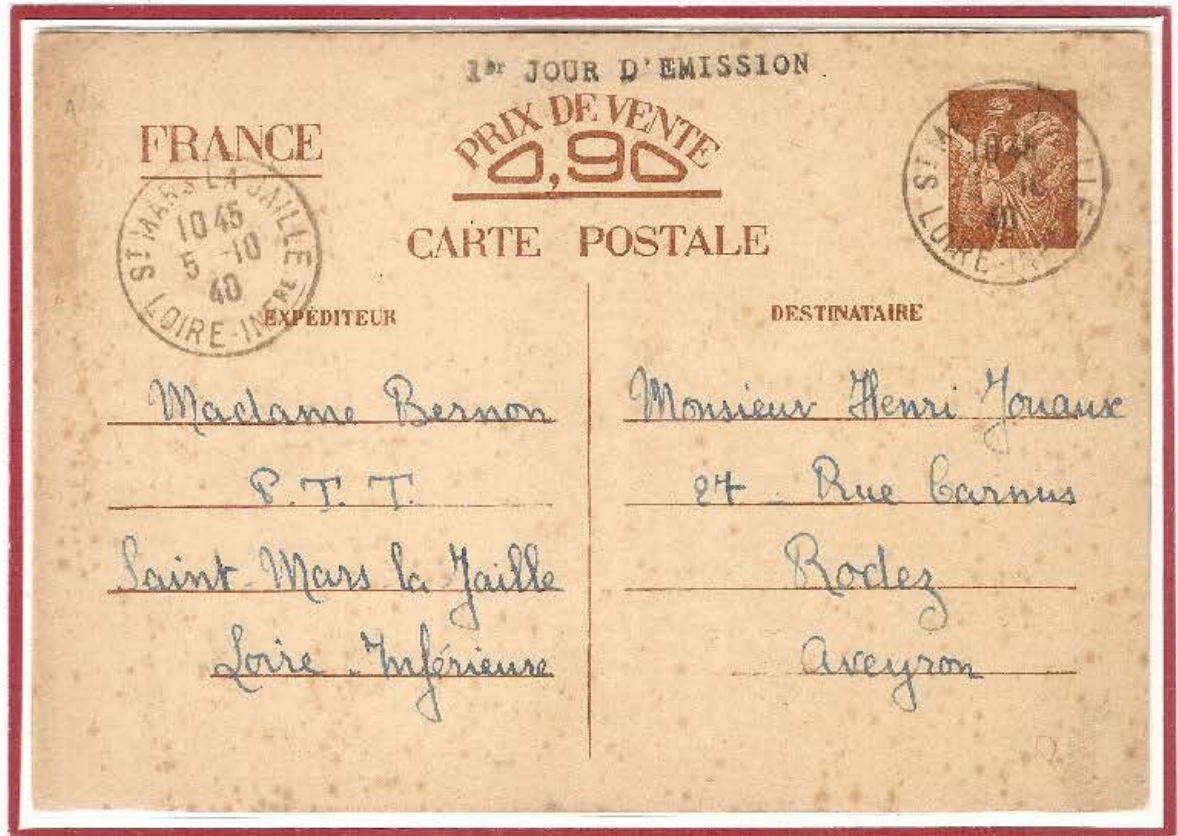 1er JOUR D'EMISSION
FRANCE
PRIX DE VENTE
0,90
CARTE POSTALE
ST MARS-LA-JAILLE
10 45
5 -10
40
LOIRE-INFRE
10 45
10
40
LOIRE-IN
EXPÉDITEUR
Madame Bernon
P. T. T.
Saint-Mars la Jaille
Loire-Inférieure
DESTINATAIRE
Monsieur Henri Jouaux
27 Rue Carnus
Rodez
Aveyron